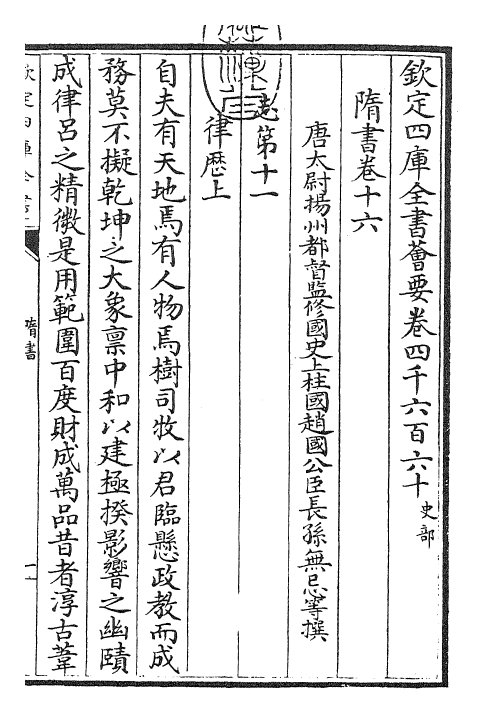 欽定四庫全書薈要卷四千六百六十 史部
隋書卷十六
唐太尉揚州都督監修國史上柱國趙國公臣長孫無忌等撰
志第十一
律厯上
自夫有天地焉有人物焉樹司牧以君臨懸政教而成
務莫不擬乾坤之大象稟中和以建極揆影響之幽賾
成律呂之精微是用範圍百度財成萬品昔者淳古葦
隋書
一